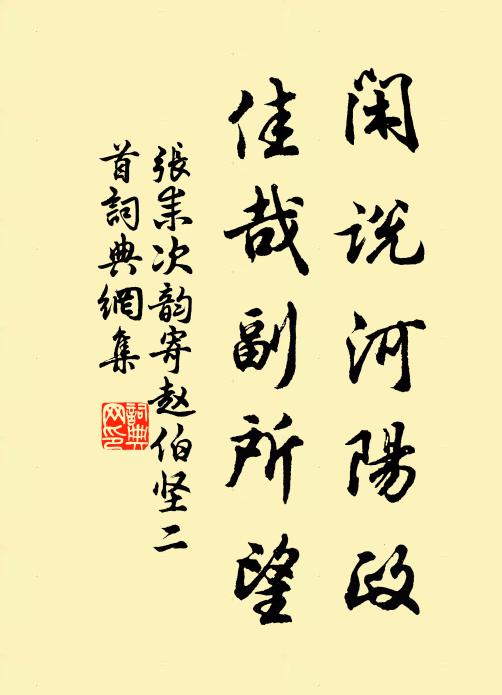 闲说河陽政
佳哉副所望
張耒次韵寄赵伯坚二
首詞典網集
詞典
网印